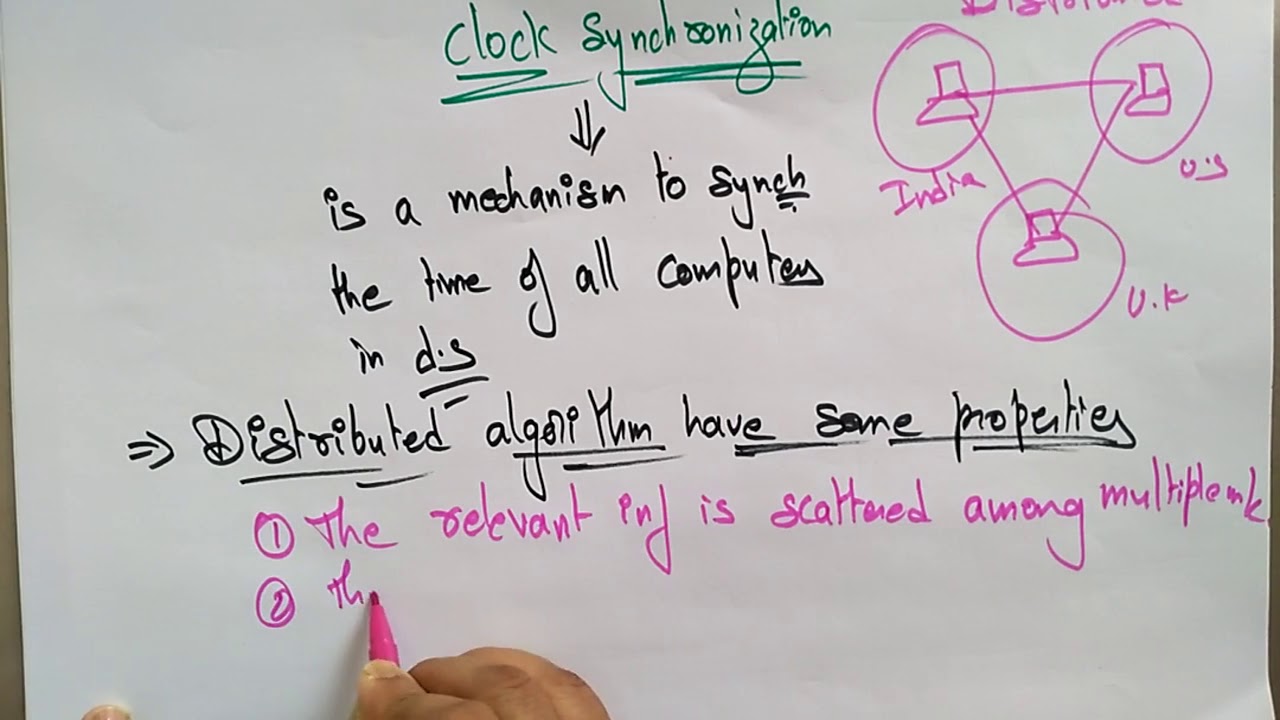 Clock Synchronization
is a mechanism to synch
the time of all computers
in d.s
India
U.S
U.K
⇒ Distributed algorithm have some properties
① The relevant inf is scattered among multiple
② Th